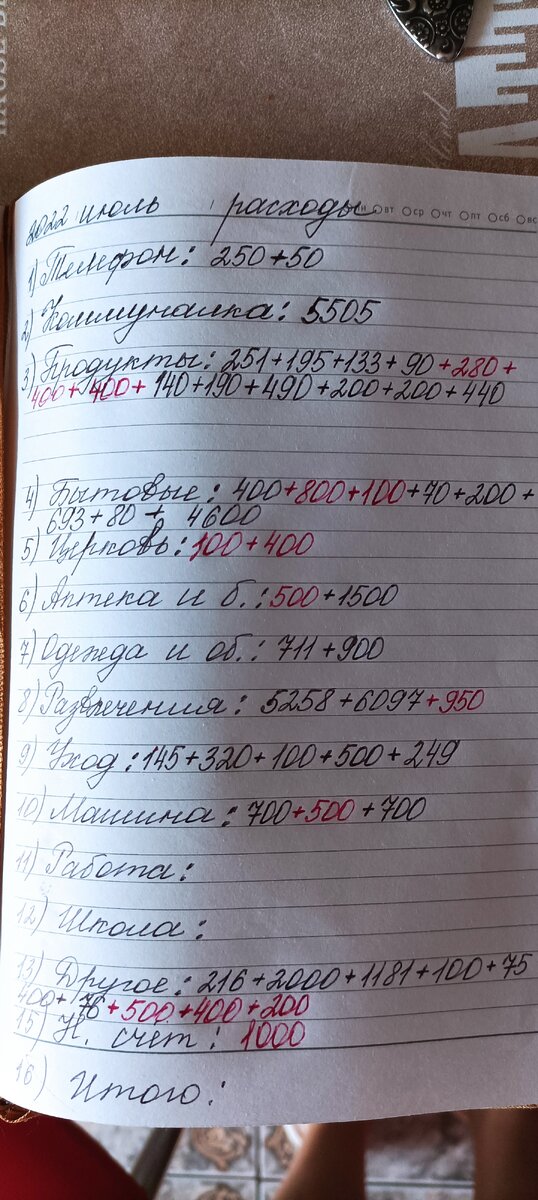 2022 июль расходы
вт ср чт пт сб вс
1) Телефон: 250+50
2) Коммуналка: 5505
3) Продукты: 251+195+133+90+280+
400+400+140+190+490+200+200+440
4) Бытовые: 400+800+100+70+200+
693+80+ 4600
5) Церковь: 100+400
6) Аптека и б.: 500+1500
7) Одежда и об.: 711+900
8) Развлечения: 5258+6097+950
9) Уход: 145+320+100+500+249
10) Машина: 700+500+700
11) Работа:
12) Школа:
13) Другое: 216+2000+1181+100+75
400+76+500+400+200
15) Н. счет: 1000
16) Итого: